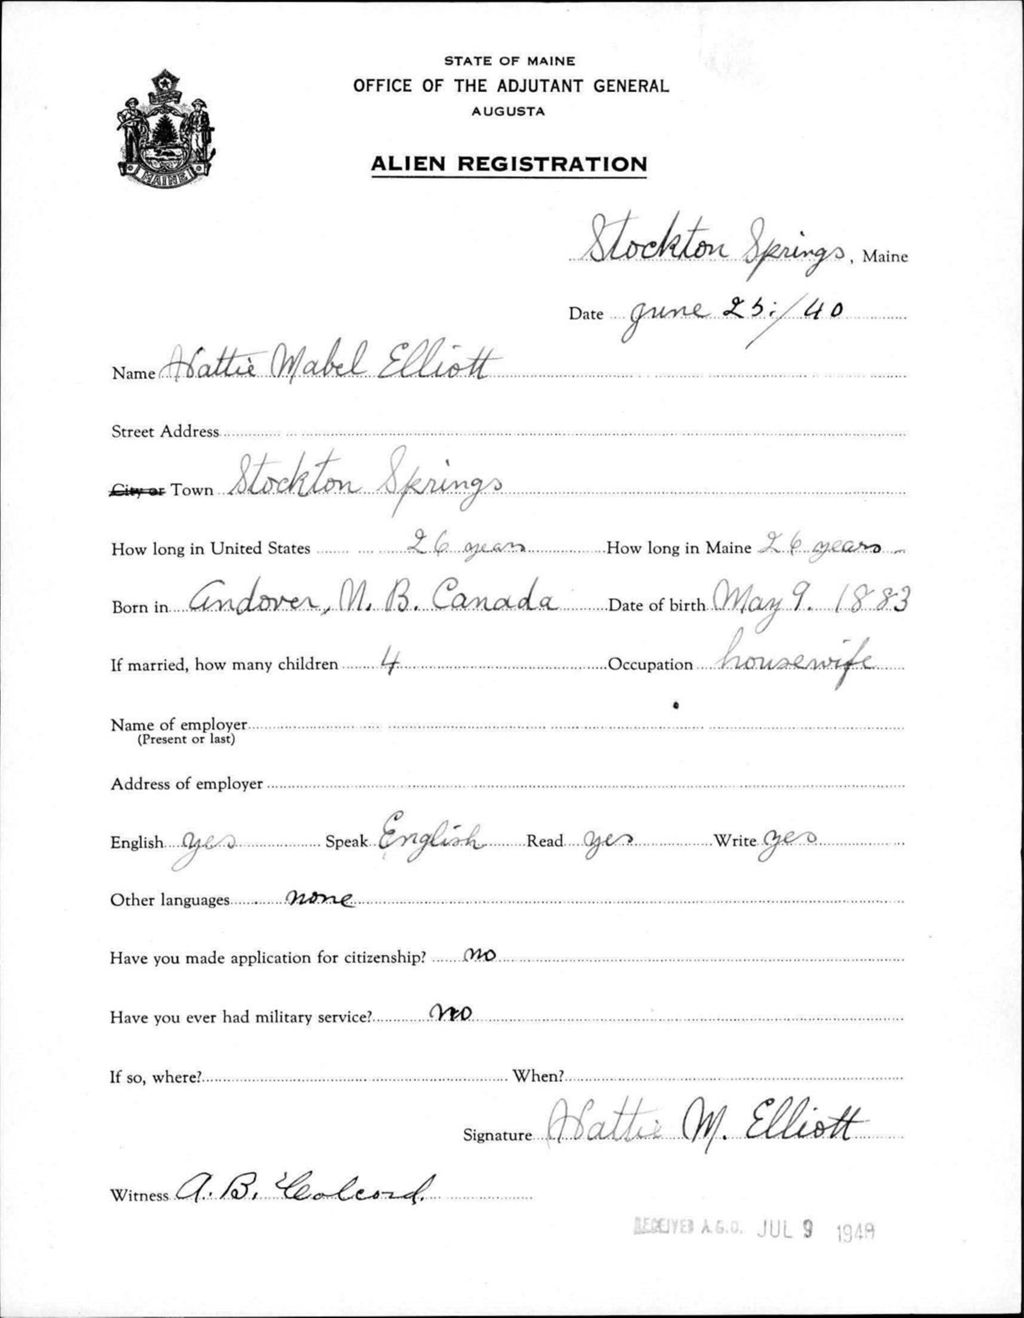 STATE OF MAINE
OFFICE OF THE ADJUTANT GENERAL
AUGUSTA
MAINE
ALIEN REGISTRATION
Stockton Springs, Maine
Date June 25:/40
Name Hattie Mabel Elliott
Street Address
City or Town Stockton Springs
How long in United States 26 years How long in Maine 26 years
Born in Andover, N. B. Canada Date of birth May 9. 1883
If married, how many children 4 Occupation housewife
Name of employer
(Present or last)
Address of employer
English yes Speak English Read yes Write yes
Other languages none
Have you made application for citizenship? no
Have you ever had military service? no
If so, where? When?
Signature Hattie M. Elliott
Witness A. B. Colcord.
RECEIVED A.G.O. JUL 9 1940